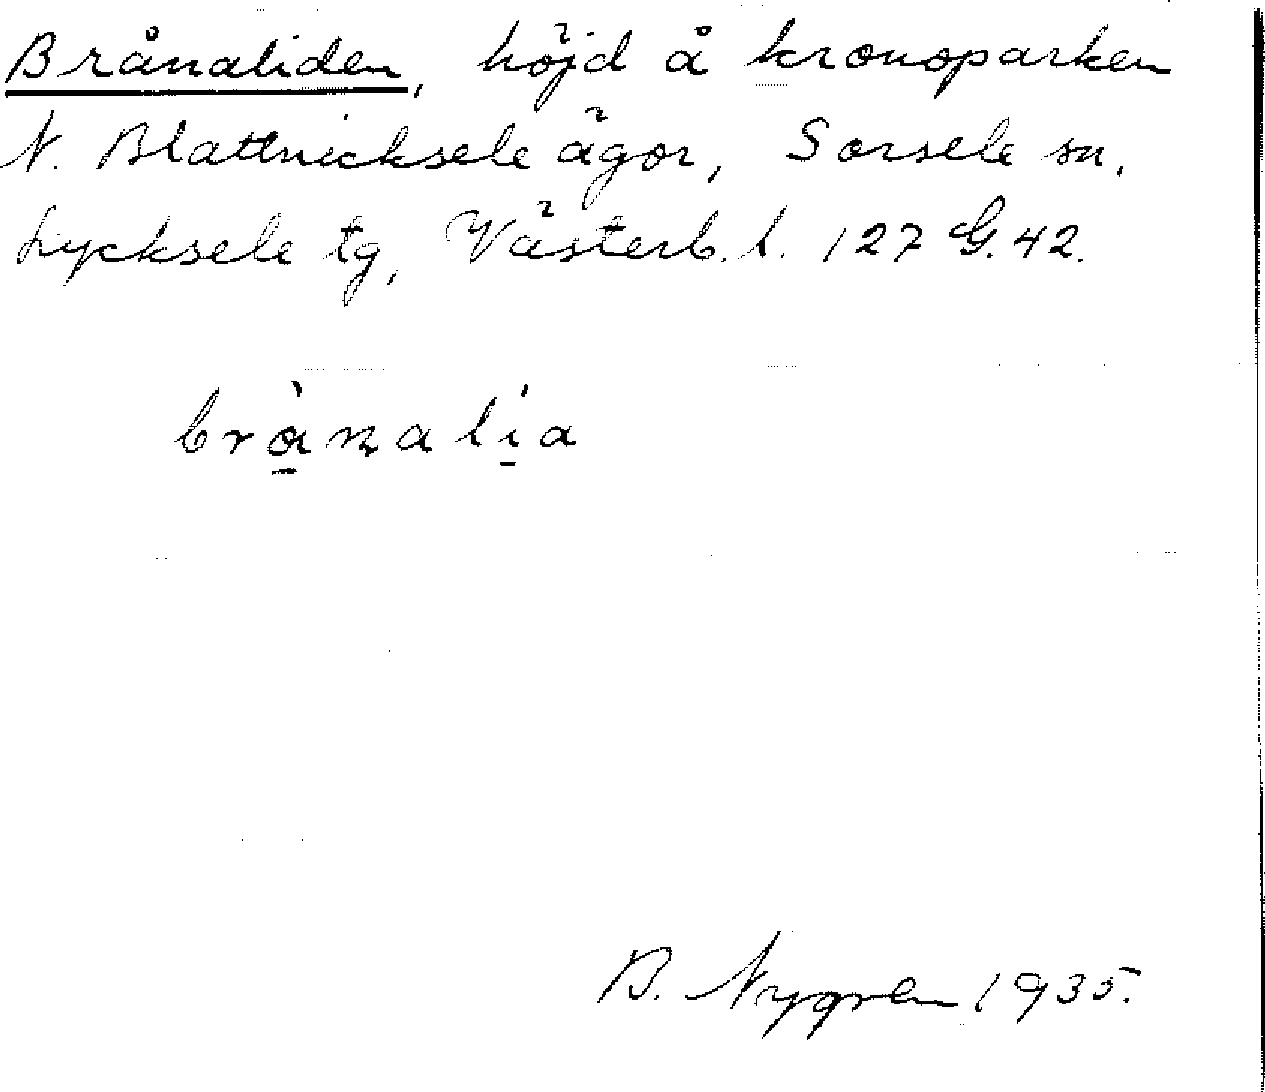 Brånaliden, höjd å kronoparken
N. Blattnicksele ägor, Sorsele sn,
Lycksele tg, Västerb. l. 127 G. 42.
brånalia
B. Nygren 1935.